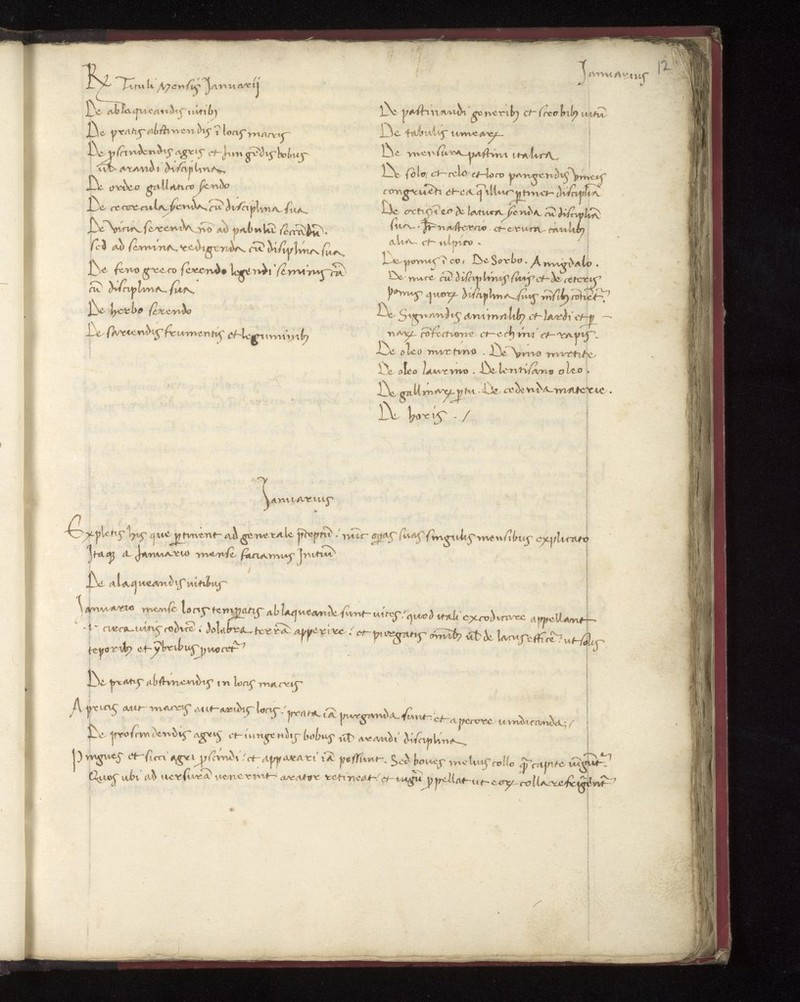 Januarius 12
Rx Tituli Mensis Januarij
De ablaqueandis uitibꝫ
De pratis abstinendis ī locis macris
De ꝓscindendis agris et Jungēdis bobus
uł arandi disciplina
De ordeo gallatico serendo
De cecercula serenda cū disciplina sua
De Vicia serenda nō ad pabulū
sed ad semina redigenda cū disiplina sua
De feno greco serendo legendi seminis cā
cū disciplina sua
De herbo serendo
De sariendis frumentis et leguminibꝫ
De pastinandi generibꝫ et scrobibꝫ uitiū
De tabulis uinearꝝ
De mensura pastini italica
De solo et celo et loco pangendis Vineis
congruēti et ea q̄ illuc ꝑtinēt disciplīa
De lactuca serenda cū disciplīa
sua. nasturcio et eruca caulibꝫ
alia et ulpico.
De pomis ī eo. De Sorbo. Amigdalo.
De nuce cū disciplinis suis et de ceteris
pomis quorꝝ disciplina suis mēsibꝫ
De Signandis animalibꝫ et lardi et ꝑ
narꝝ cōfectione et echini et rapis.
De oleo mirtino. De Vino mirtite
De oleo laurino. De lentiscino oleo.
De gallinarꝝ ꝑtu. De cedenda materie.
De horis ./
Januarius
Expletis his que ꝑtinent ad generale p̄ceptū: nūc oꝑas suas singulis mensibus explicato
Itaqꝫ a Januario mense faciamus Initiū
De alaqueandis uitibus
Januario mense locis temꝑatis ablaqueande sunt uites: quod itali excodicare appellant
.i. circa uitis codicē: dolabra terrā apperire: et purgatis omībꝫ uł de lacus efficē: ut solis
teporibꝫ et ymbribus ꝓuocēt
De pratis abstinendis in locis macris
Apricis aut macris aut aridis locis: prata iā purganda sunt et a pecore uindicanda:/
De proscindendis agris et iungendis bobus uł arandi disciplina
Pingues et sicci agri ꝓscindi: et apparari iā possunt. Sed boues melius collo q̄ capite iūgūt
Quos ubi ad uersurā uenerint arator retineat et iugū ꝓpellat ut eorꝝ colla refrigērēt